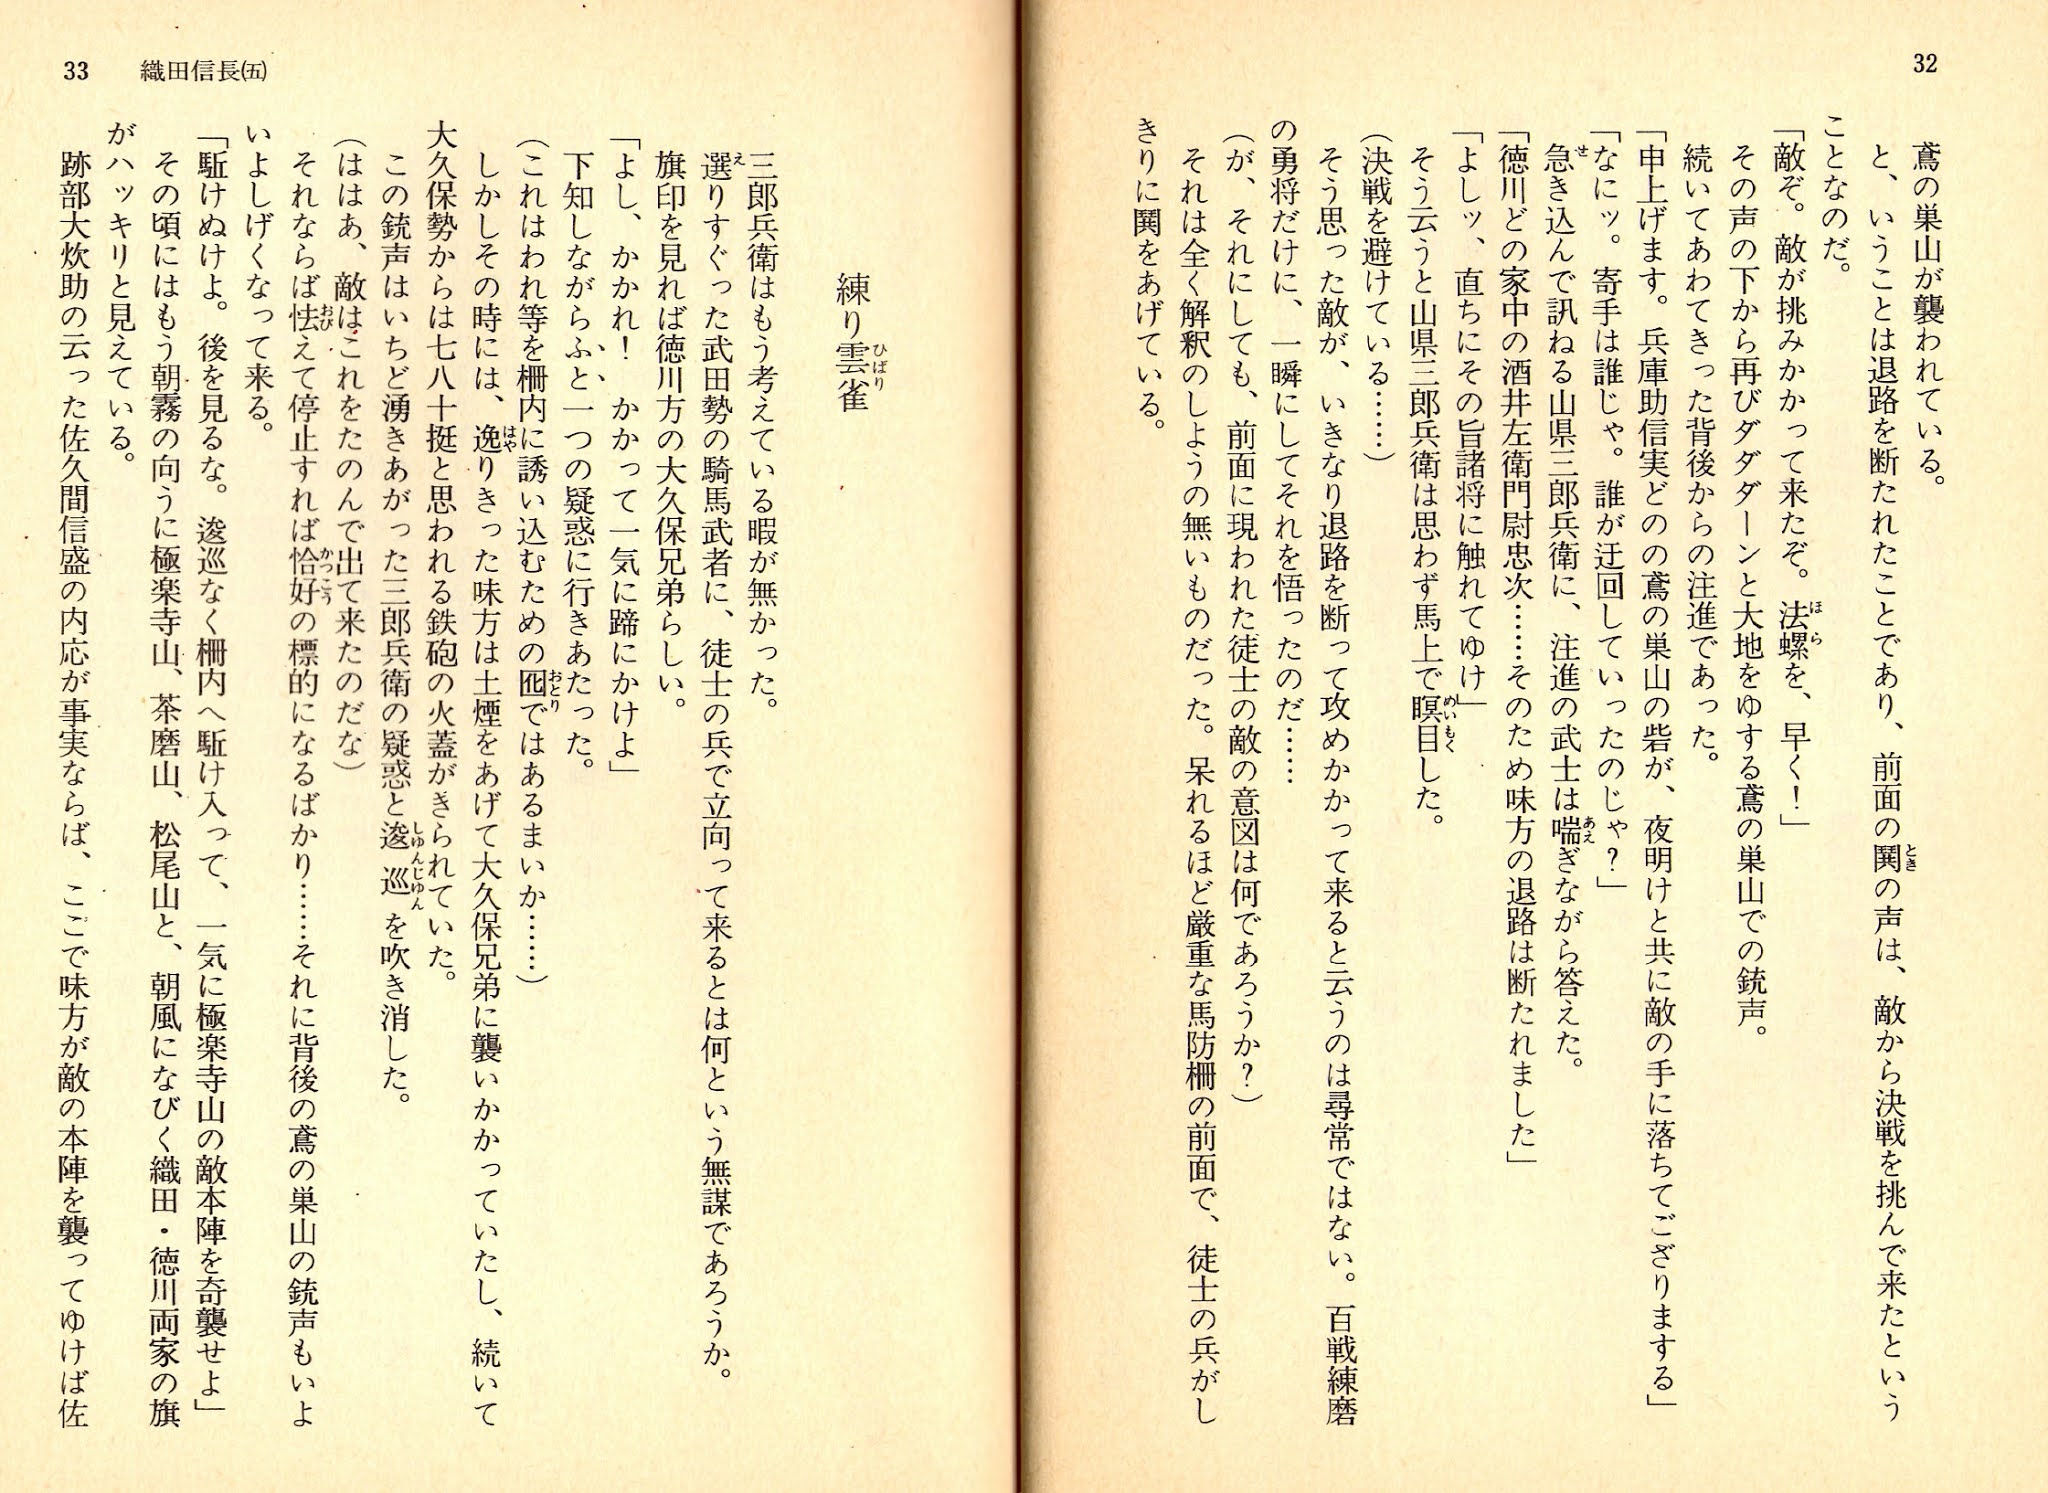 32
鳶の巣山が襲われている。
と、いうことは退路を断たれたことであり、前面の鬨の声は、敵から決戦を挑んで来たという
ことなのだ。
「敵ぞ。敵が挑みかかって来たぞ。法螺を、早く！」
その声の下から再びダダダーンと大地をゆする鳶の巣山での銃声。
続いてあわてきった背後からの注進であった。
「申上げます。兵庫助信実どのの鳶の巣山の砦が、夜明けと共に敵の手に落ちてござりまする」
「なにッ。寄手は誰じゃ。誰が迂回していったのじゃ？」
急き込んで訊ねる山県三郎兵衛に、注進の武士は喘ぎながら答えた。
「徳川どの家中の酒井左衛門尉忠次……そのため味方の退路は断たれました」
「よしッ、直ちにその旨諸将に触れてゆけ」
そう云うと山県三郎兵衛は思わず馬上で瞑目した。
（決戦を避けている……）
そう思った敵が、いきなり退路を断って攻めかかって来ると云うのは尋常ではない。百戦練磨
の勇将だけに、一瞬にしてそれを悟ったのだ……
（が、それにしても、前面に現われた徒士の敵の意図は何であろうか？）
それは全く解釈のしようの無いものだった。呆れるほど厳重な馬防柵の前面で、徒士の兵がし
きりに鬨をあげている。
33 織田信長㈤
練り雲雀
三郎兵衛はもう考えている暇が無かった。
選りすぐった武田勢の騎馬武者に、徒士の兵で立向って来るとは何という無謀であろうか。
旗印を見れば徳川方の大久保兄弟らしい。
「よし、かかれ！　かかって一気に蹄にかけよ」
下知しながらふと一つの疑惑に行きあたった。
（これはわれ等を柵内に誘い込むための囮ではあるまいか……）
しかしその時には、逸りきった味方は土煙をあげて大久保兄弟に襲いかかっていたし、続いて
大久保勢からは七八十挺と思われる鉄砲の火蓋がきられていた。
この銃声はいちど湧きあがった三郎兵衛の疑惑と逡巡を吹き消した。
（ははあ、敵はこれをたのんで出て来たのだな）
それならば怯えて停止すれば恰好の標的になるばかり……それに背後の鳶の巣山の銃声もいよ
いよしげくなって来る。
「駈けぬけよ。後を見るな。逡巡なく柵内へ駈け入って、一気に極楽寺山の敵本陣を奇襲せよ」
その頃にはもう朝霧の向うに極楽寺山、茶磨山、松尾山と、朝風になびく織田・徳川両家の旗
がハッキリと見えている。
跡部大炊助の云った佐久間信盛の内応が事実ならば、ここで味方が敵の本陣を襲ってゆけば佐